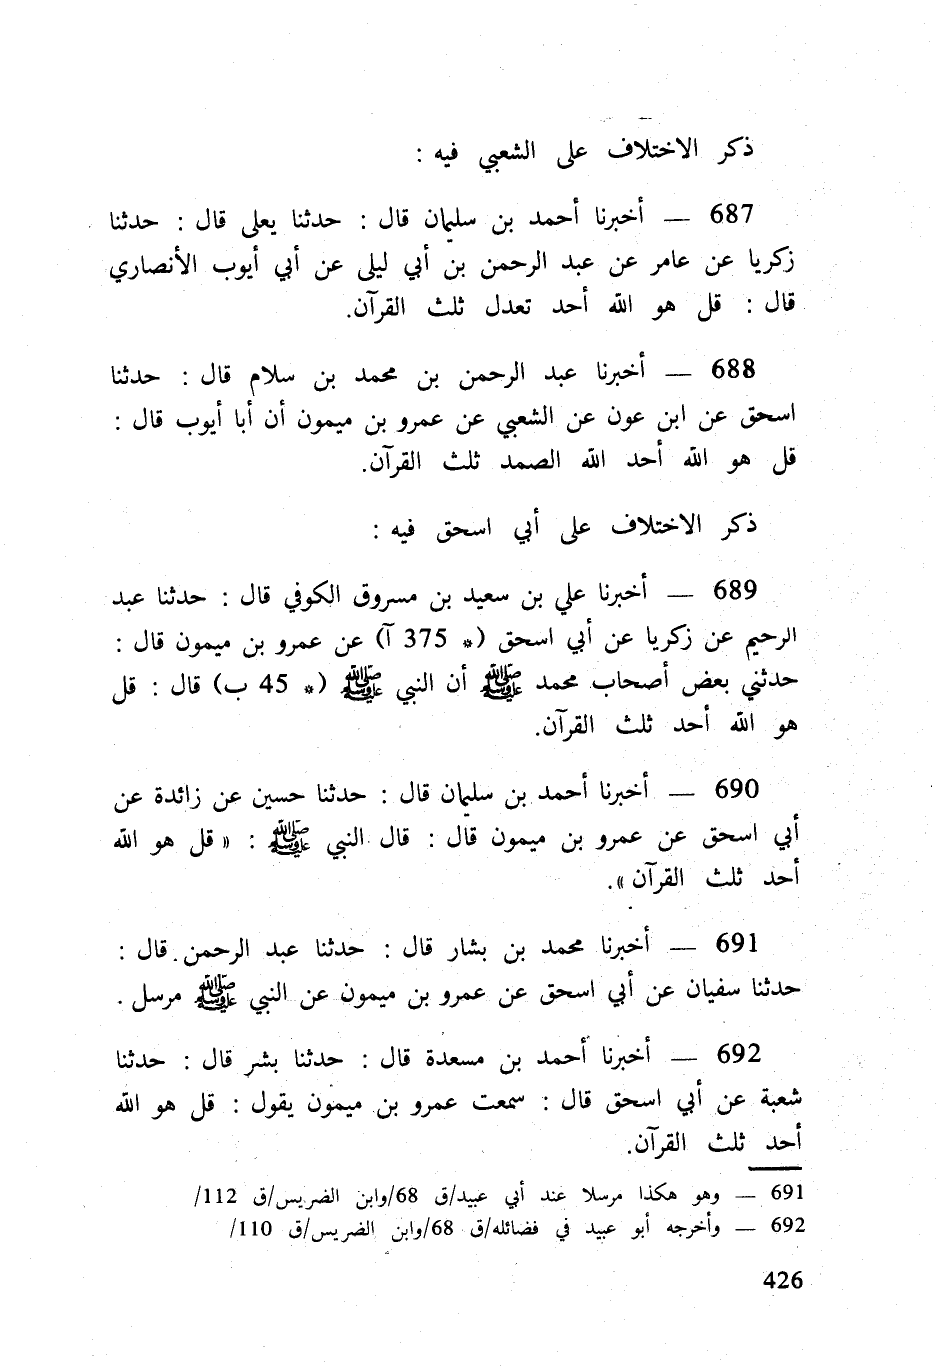 ذكر الاختلاف على الشعبي فيه :
687 — أخبرنا أحمد بن سليمان قال : حدثنا يعلى قال : حدثنا
زكريا عن عامر عن عبد الرحمن بن أبي ليلى عن أبي أيوب الأنصاري
قال : قل هو الله أحد تعدل ثلث القرآن.
688 — أخبرنا عبد الرحمن بن محمد بن سلام قال : حدثنا
اسحق عن ابن عون عن الشعبي عن عمرو بن ميمون أن أبا أيوب قال :
قل هو الله أحد الله الصمد ثلث القرآن.
ذكر الاختلاف على أبي اسحق فيه :
689 — أخبرنا علي بن سعيد بن مسروق الكوفي قال : حدثنا عبد
الرحيم عن زكريا عن أبي اسحق (* 375 آ) عن عمرو بن ميمون قال :
حدثني بعض أصحاب محمد ﷺ أن النبي ﷺ (* 45 ب) قال : قل
هو الله أحد ثلث القرآن.
690 — أخبرنا أحمد بن سليمان قال : حدثنا حسين عن زائدة عن
أبي اسحق عن عمرو بن ميمون قال : قال النبي ﷺ : « قل هو الله
أحد ثلث القرآن ».
691 — أخبرنا محمد بن بشار قال : حدثنا عبد الرحمن قال :
حدثنا سفيان عن أبي اسحق عن عمرو بن ميمون عن النبي ﷺ مرسل .
692 — أخبرنا أحمد بن مسعدة قال : حدثنا بشر قال : حدثنا
شعبة عن أبي اسحق قال : سمعت عمرو بن ميمون يقول : قل هو الله
أحد ثلث القرآن.
691 — وهو هكذا مرسلا عند أبي عبيد/ق 68/وابن الضريس/ق 112/
692 — وأخرجه أبو عبيد في فضائله/ق 68/وابن الضريس/ق 110/
426